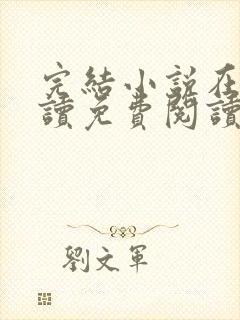 完結小說在
讀免費閱讀
劉文軍